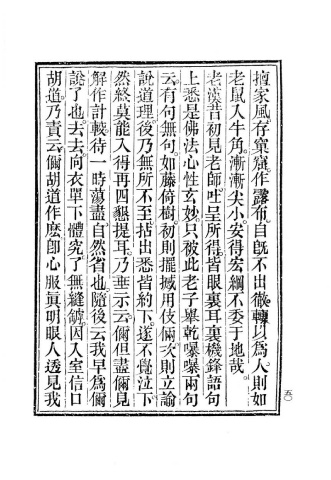 擅家風存窠窟作露布自既不出徹轉以爲人則如
老鼠入牛角漸漸尖小安得宏綱不委于地哉
老漢昔初見老師吐呈所得皆眼裏耳裏機鋒語句
上悉是佛法心性玄妙只被此老子舉乾曝曝兩句
云有句無句如藤倚樹初則擺撼用伎倆次則立論
說道理後乃無所不至拈出悉皆約下遂不覺泣下
然終莫能入得再四懇提耳乃垂示云儞但盡儞見
解作計較待一時蕩盡自然省也隨後云我早爲儞
說了也去去向衣單下體究了無縫罅因入室信口
胡道乃責云儞胡道作麽卽心服眞明眼人透見我
五〇